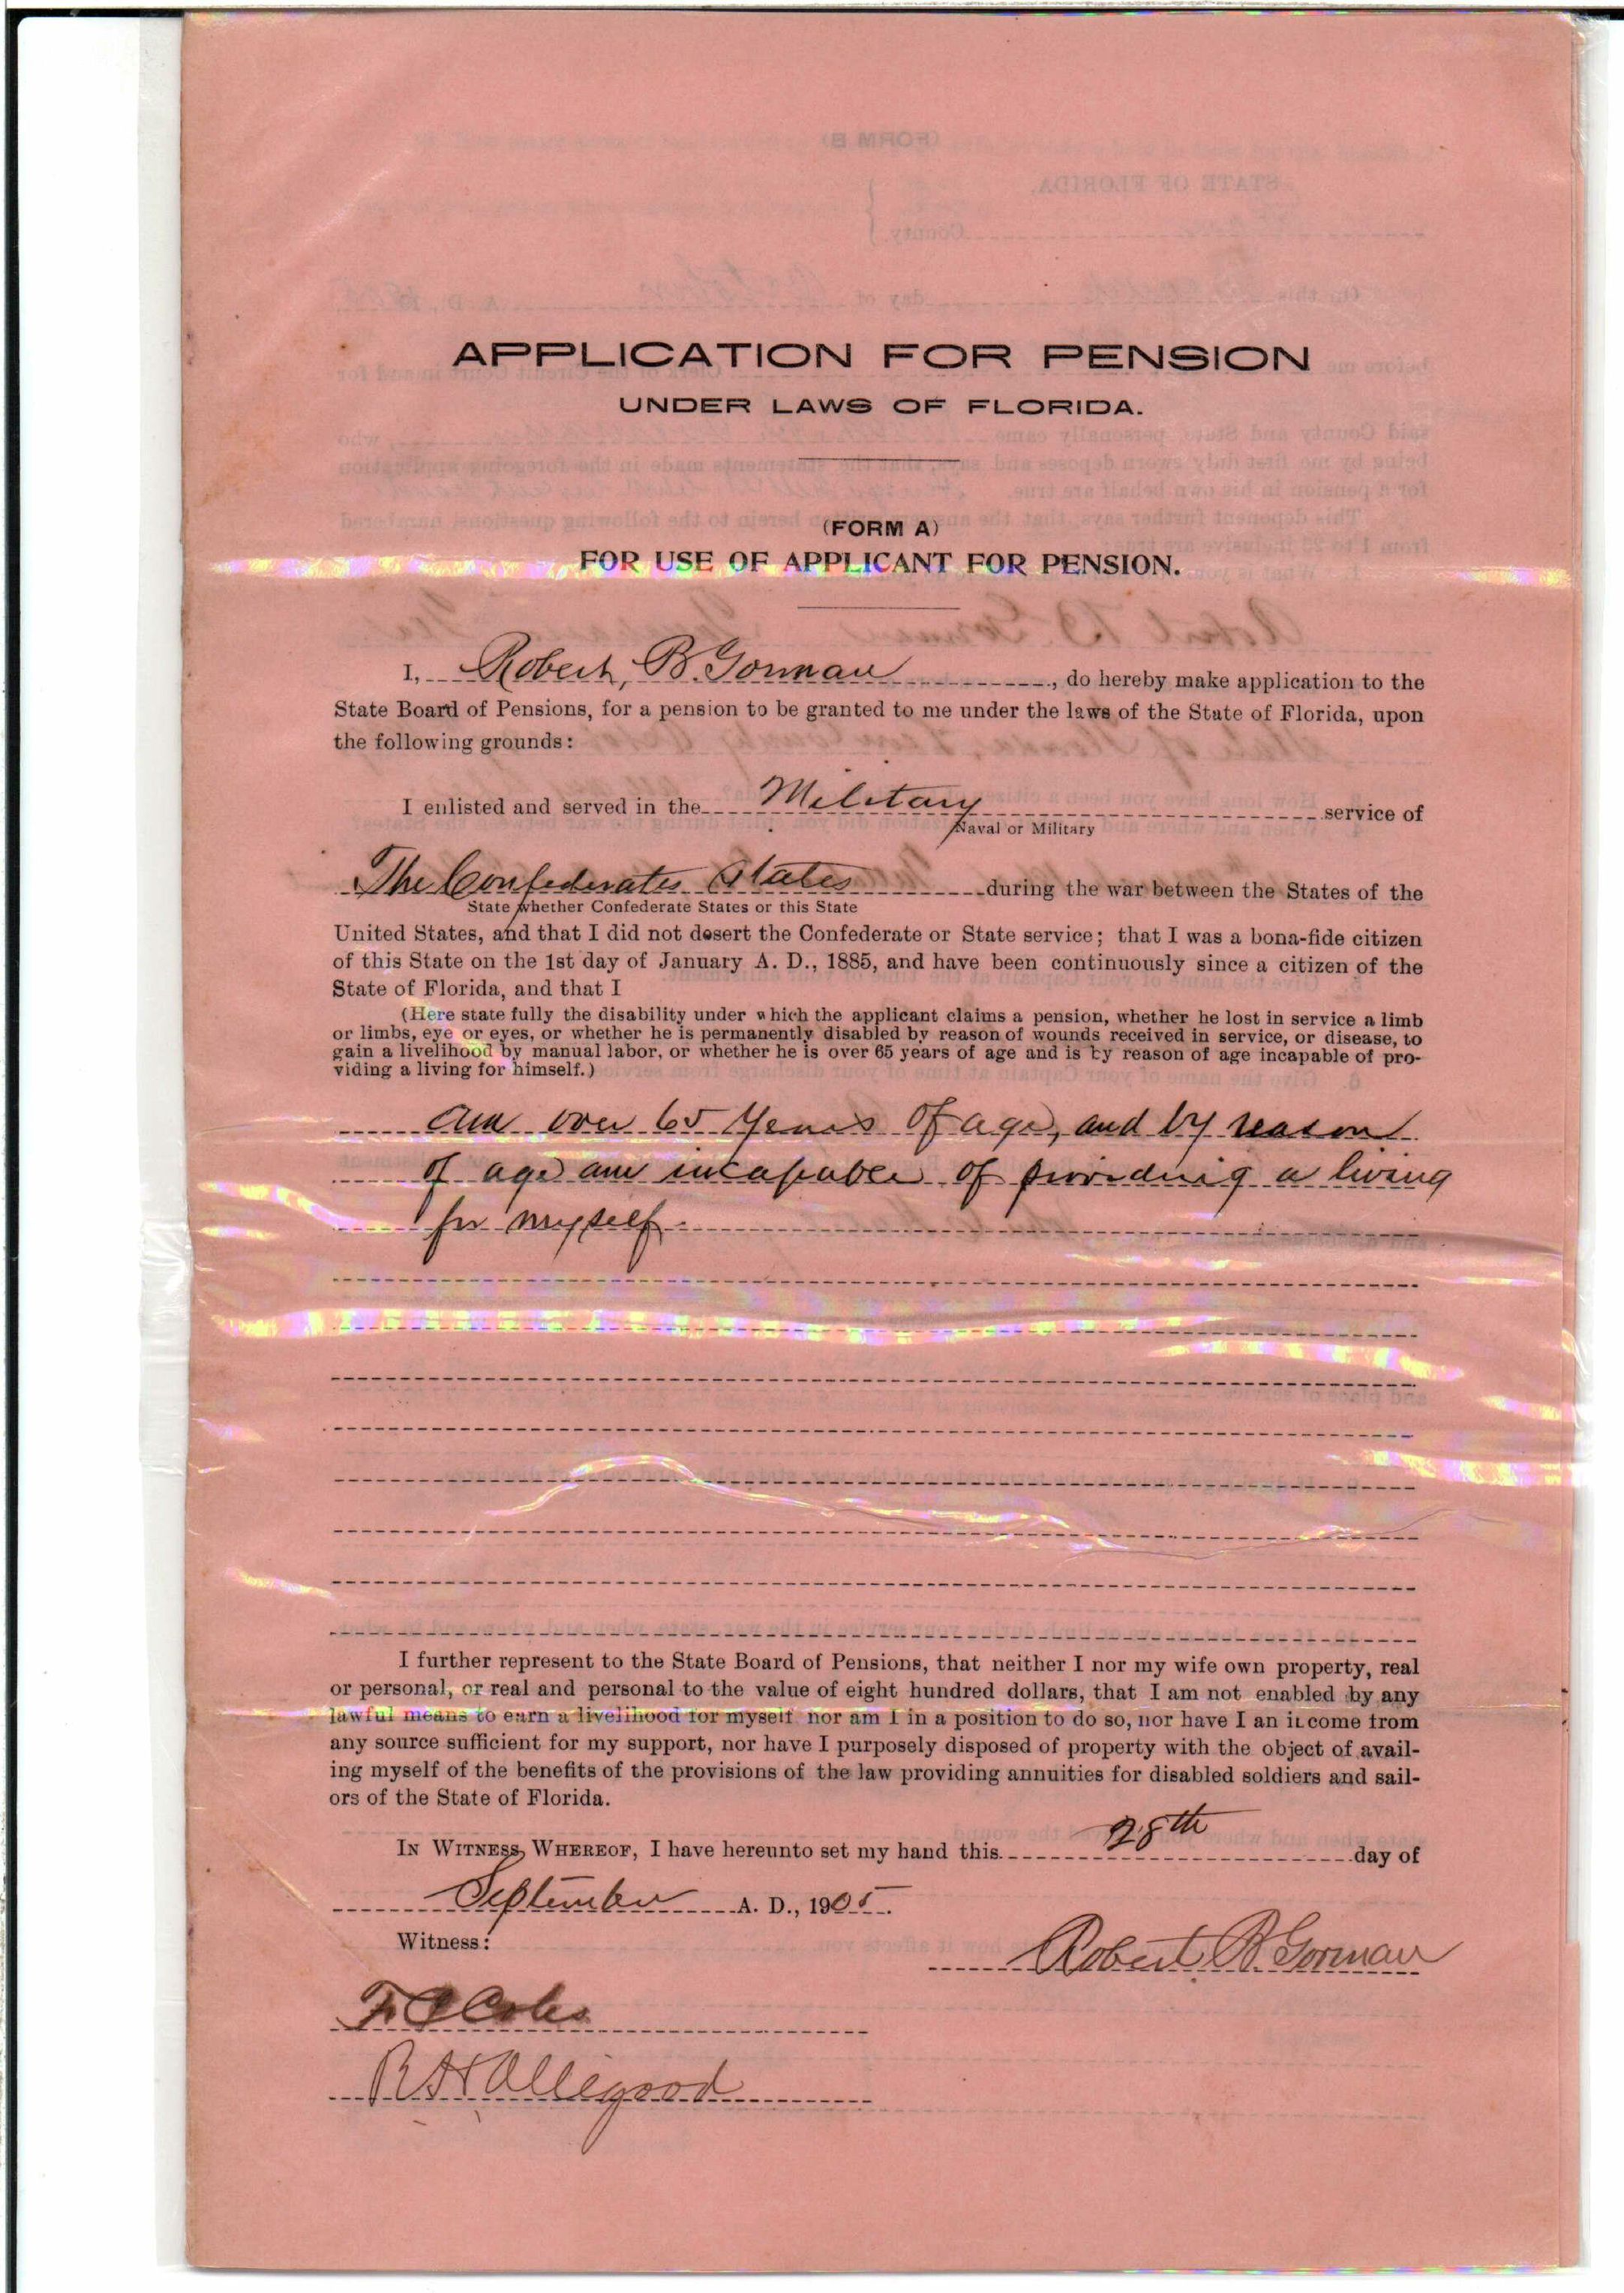 APPLICATION FOR PENSION
UNDER LAWS OF FLORIDA.
(FORM A)
FOR USE OF APPLICANT FOR PENSION.
I, Robert, B. Gorman, do hereby make application to the
State Board of Pensions, for a pension to be granted to me under the laws of the State of Florida, upon
the following grounds:
I enlisted and served in the Military service of
Naval or Military
The Confederate States during the war between the States of the
State whether Confederate States or this State
United States, and that I did not desert the Confederate or State service; that I was a bona-fide citizen
of this State on the 1st day of January A. D., 1885, and have been continuously since a citizen of the
State of Florida, and that I
(Here state fully the disability under which the applicant claims a pension, whether he lost in service a limb
or limbs, eye or eyes, or whether he is permanently disabled by reason of wounds received in service, or disease, to
gain a livelihood by manual labor, or whether he is over 65 years of age and is by reason of age incapable of pro-
viding a living for himself.)
am over 65 Years of age, and by reason
of age am incapable of providing a living
for myself.
I further represent to the State Board of Pensions, that neither I nor my wife own property, real
or personal, or real and personal to the value of eight hundred dollars, that I am not enabled by any
lawful means to earn a livelihood for myself nor am I in a position to do so, nor have I an income from
any source sufficient for my support, nor have I purposely disposed of property with the object of avail-
ing myself of the benefits of the provisions of the law providing annuities for disabled soldiers and sail-
ors of the State of Florida.
IN WITNESS WHEREOF, I have hereunto set my hand this 28th day of
September A. D., 1905.
Witness:
Robert B. Gorman
R H Alligood